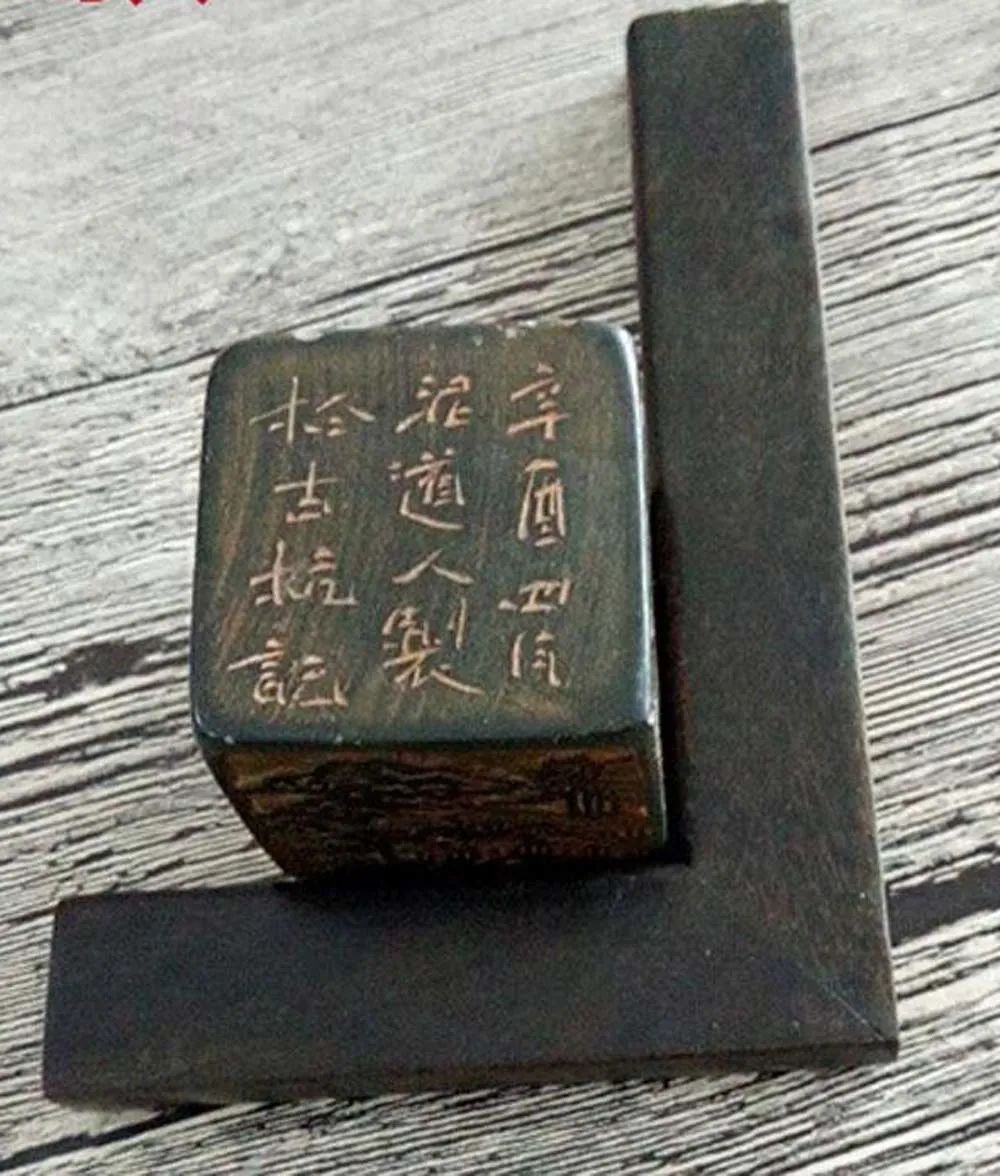 辛酉四月
泥道人製
拾古杭記